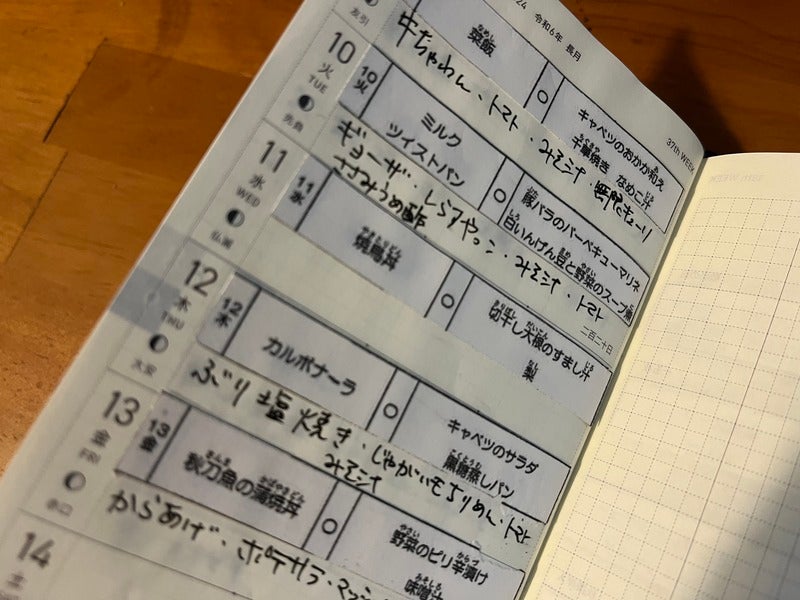 24 令和6年 長月
友引
菜飯
なめし
○
キャベツのおかか和え
千草焼き なめこ汁
牛ちゃわん・トマト・みそ汁・
37th WEEK
10
火
TUE
先負
10
火
ミルク
ツイストパン
○
豚バラのバーベキューマリネ
白いんげん豆と野菜のスープ煮
ギョーザ・しらすやっこ・みそ汁・トマト
ささみうめ酢
11
水
WED
仏滅
11
水
焼鳥丼
やきとりどん
○
切干し大根のすまし汁
梨
二百二十日
12
木
THU
大安
12
木
カルボナーラ
○
キャベツのサラダ
黒糖蒸しパン
ぶり塩焼き・じゃがいもちりめん・トマト
みそ汁
13
金
FRI
赤口
13
金
秋刀魚の蒲焼丼
さんま かばやきどん
○
野菜のピリ辛漬け
味噌汁
からあげ・ポテサラ・マッシ
14
土